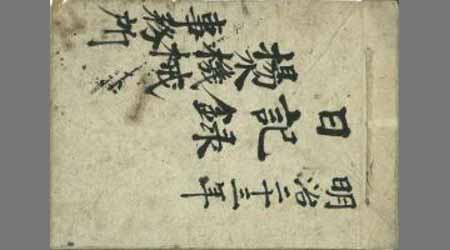 明治二十三年
日記録
揚水機械
事務所